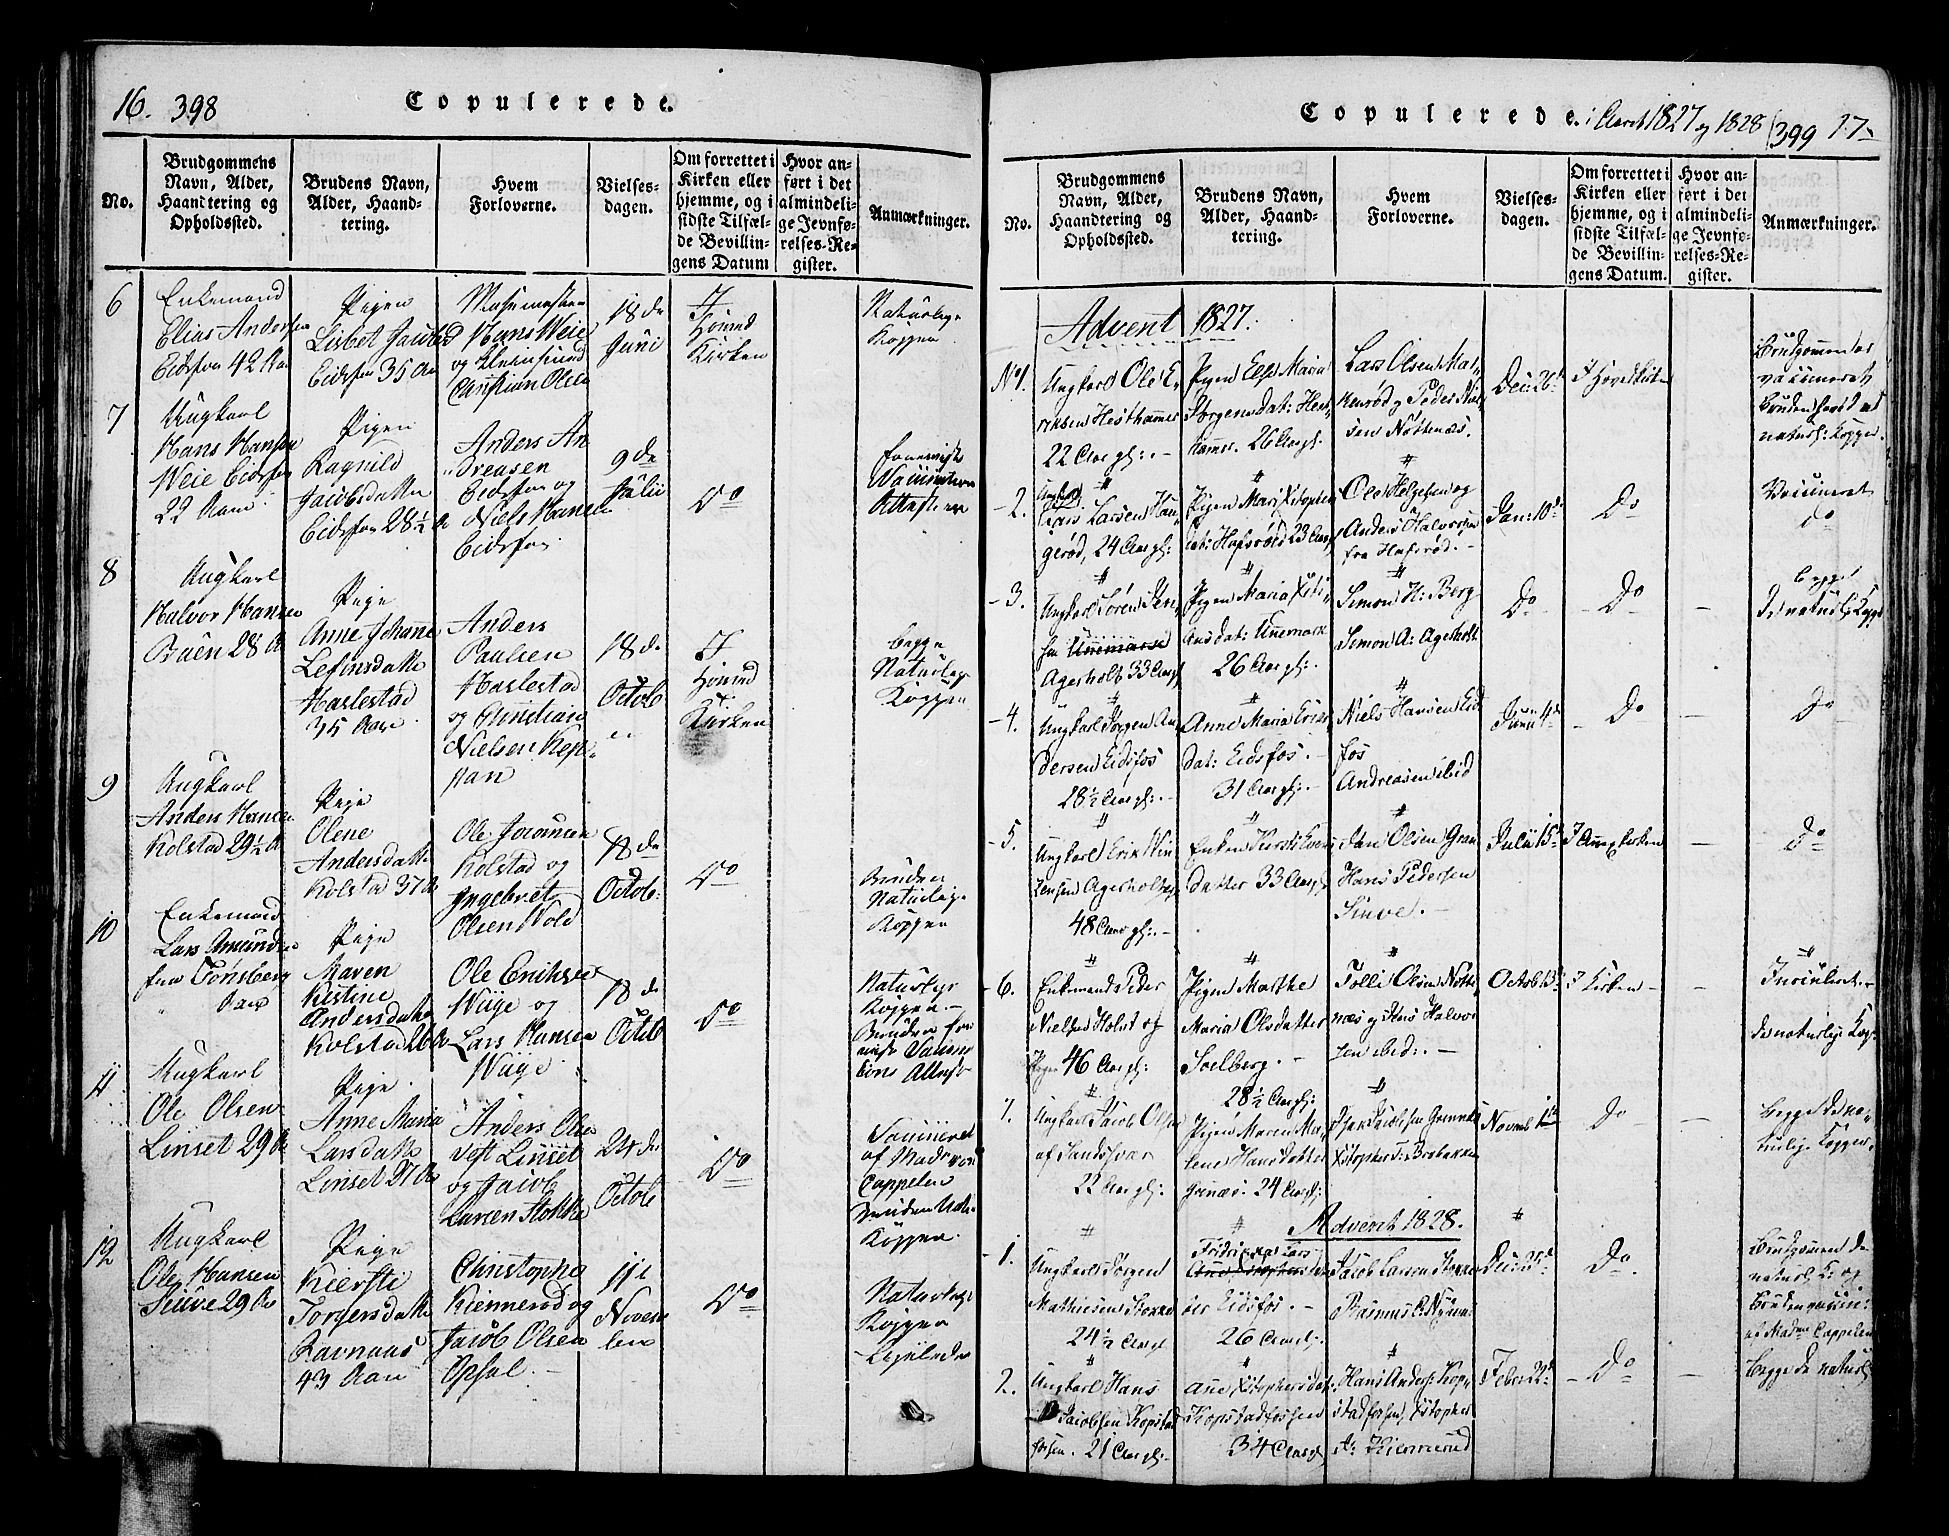 16. 398
Copulerede.
No.
Brudgommens Navn, Alder, Haandtering og Opholdssted.
Brudens Navn, Alder, Haandtering.
Hvem Forloverne.
Vielses-dagen.
Om forrettet i Kirken eller hjemme, og i sidste Tilfælde Bevillingens Datum
Hvor anført i det almindelige Jevnførelses-Register.
Anmærkninger.
6
Enkemand
Elias Andersen
Eidsfos 42 Aar
Pigen
Lisbet Jacobsd
Eidsfos 35 Aar
Hans Weie
og
Christian Olsen
18de
Juni
I
Hoved
Kirken
Naturlige
Kopper
7
Ungkarl
Hans Hansen
Weie Eidsfos
22 Aar
Pigen
Ragnild
Jacobsdatter
Eidsfos 28½ A
Anders An
dreasen
Eidsfos og
Niels Hansen
Eidsfos
9de
Julii
Do
Attester
8
Ungkarl
Halvor Hansen
Bråen 28 A
Pige
Anne Johanne
Lefinsdatter
Haslestad
35 Aar
Anders
Paulsen
Haslestad
og Christian
Nielsen Kop
stan
18de
Octob
I
Hoved
Kirken
begge
Naturlige
Kopper
9
Ungkarl
Anders Hansen
Kolstad 29½ A
Pige
Olene
Andersdatter
Kolstad 37 A
Ole
Kolstad og
Ingebret
Olsen Wold
18de
Octob:
Do
Bruden
Naturlige
Kopper
10
Enkemand
Lars Amundsen
fra Tønsberg
Aar
Pige
Maren
Kistine
Andersdatter
Kolstad 26 A
Ole Eriksen
Wiige og
Lars Hansen
Wiige
18de
Octob
Do
Naturlige
Kopper
Bruden
Attest
11
Ungkarl
Ole Olsen
Linset 29 A
Pige
Anne Maria
Larsdatter
Linset 27 A
Anders Olsen
Linset
og Jacob
Larsen Stokke
24de
Octob
Do
Vaccineret
af Madam von
Cappelen
Bruden Nat.
Kopper.
12
Ungkarl
Ole Hansen
Seüve 29 A
Pige
Kiersti
Torgersdatter
Ravnaas
43 Aar
Christopher
Kiemmerud og
Jacob Olsen
Opsal.
11te
Novem
ber
Do
Naturlige
Kopper
Copulerede. i Aaret 1827 og 1828
399 17.
No.
Brudgommens Navn, Alder, Haandtering og Opholdssted.
Brudens Navn, Alder, Haandtering.
Hvem Forloverne.
Vielses-dagen.
Om forrettet i Kirken eller hjemme, og i sidste Tilfælde Bevillingens Datum.
Hvor anført i det almindelige Jevnførelses-Register.
Anmærkninger.
Advent 1827.
No 1.
Ungkarl Ole E
riksen Hesthammer
22 Aar gl:
Pigen Else Maria
Jørgensdat: Hest
hammer. 26 Aar gl.
Lars Olsen Mat
kerød og Peder Niel
sen Nøttenæs.
Dec: 26
I Hovedkirken
Brudgommen er
vaccineret
Bruden havd at
naturl: Kopper.
2.
Ungkarl
Lars Larsen Hau
gerød, 24 Aar gl:
Pigen Mari Xstophers
dat: Hafsrød 23 Aar
Ole Helgesen og
Anders Halvorsen
fra Hafsrød.
Jan: 10
Do
Vaccineret
do
3.
Ungkarl Søren Jen
sen
Agerholt 33 Aar gl
Pigen Maria Xsti
ansdat: Unemark
26 Aar gl:
Simon H: Berg
Simon A: Agerholt
Do
Do
begge
de naturlig Kopp
4.
Ungkarl Jørgen An
dersen Eidsfos
28½ Aar gl:
Anne Maria Eriks
dat: Eidsfos.
31 Aar gl:
Niels Hansen Eid
fos
Andreasen ibid
Juni 4
Do
Do
5.
Ungkarl Erik
Jensen Agerholt
48 Aar gl:
Enken Kirsti Evens
datter 33 Aar gl
Jan Olsen Gran
Hans Pedersen
Siuve.
Julii 15
I Annexkirken
Do
6.
Enkemand Peder
Nielsen Holst af
46 Aar gl:
Pigen Marthe
Maria Olsdatter
Soelberg.
28½ Aar gl:
Tolli Olsen Nøtte
næs og Jens Halvor
sen ibid:
Octob 13
I Kirken
de naturlige Kop
7.
Ungkarl Jacob Olsen
af Sandsvær
22 Aar gl:
Pigen Maren Ma
lene Hansdatter
Grønæs. 24 Aar gl:
Xstophers: Brobakken
Novemb 1
Do
Begge de na
turlige Kopper.
Advent 1828.
1.
Ungkarl Jørgen
Mathiesen Stokke
24½ Aar gl
Fridrica Lars
ter Eidsfos.
26 Aar gl:
Jacob Larsen Stokke
Rasmus C: Nÿm
Dec: 28
Do
Brudgommen de
naturl: K: og
Bruden vaccin:
af Mad Cappelen
2.
Ungkarl Hans
Jacobsen Kopstad
forsen. 21 Aar gl:
Ane Xstophersdat
Kopstadforsen
34 Aar gl
Hans Anders: Kop
stadforsen, Xstopher
A: Kiemmerud
Febr: 22
Do
Begge de naturl